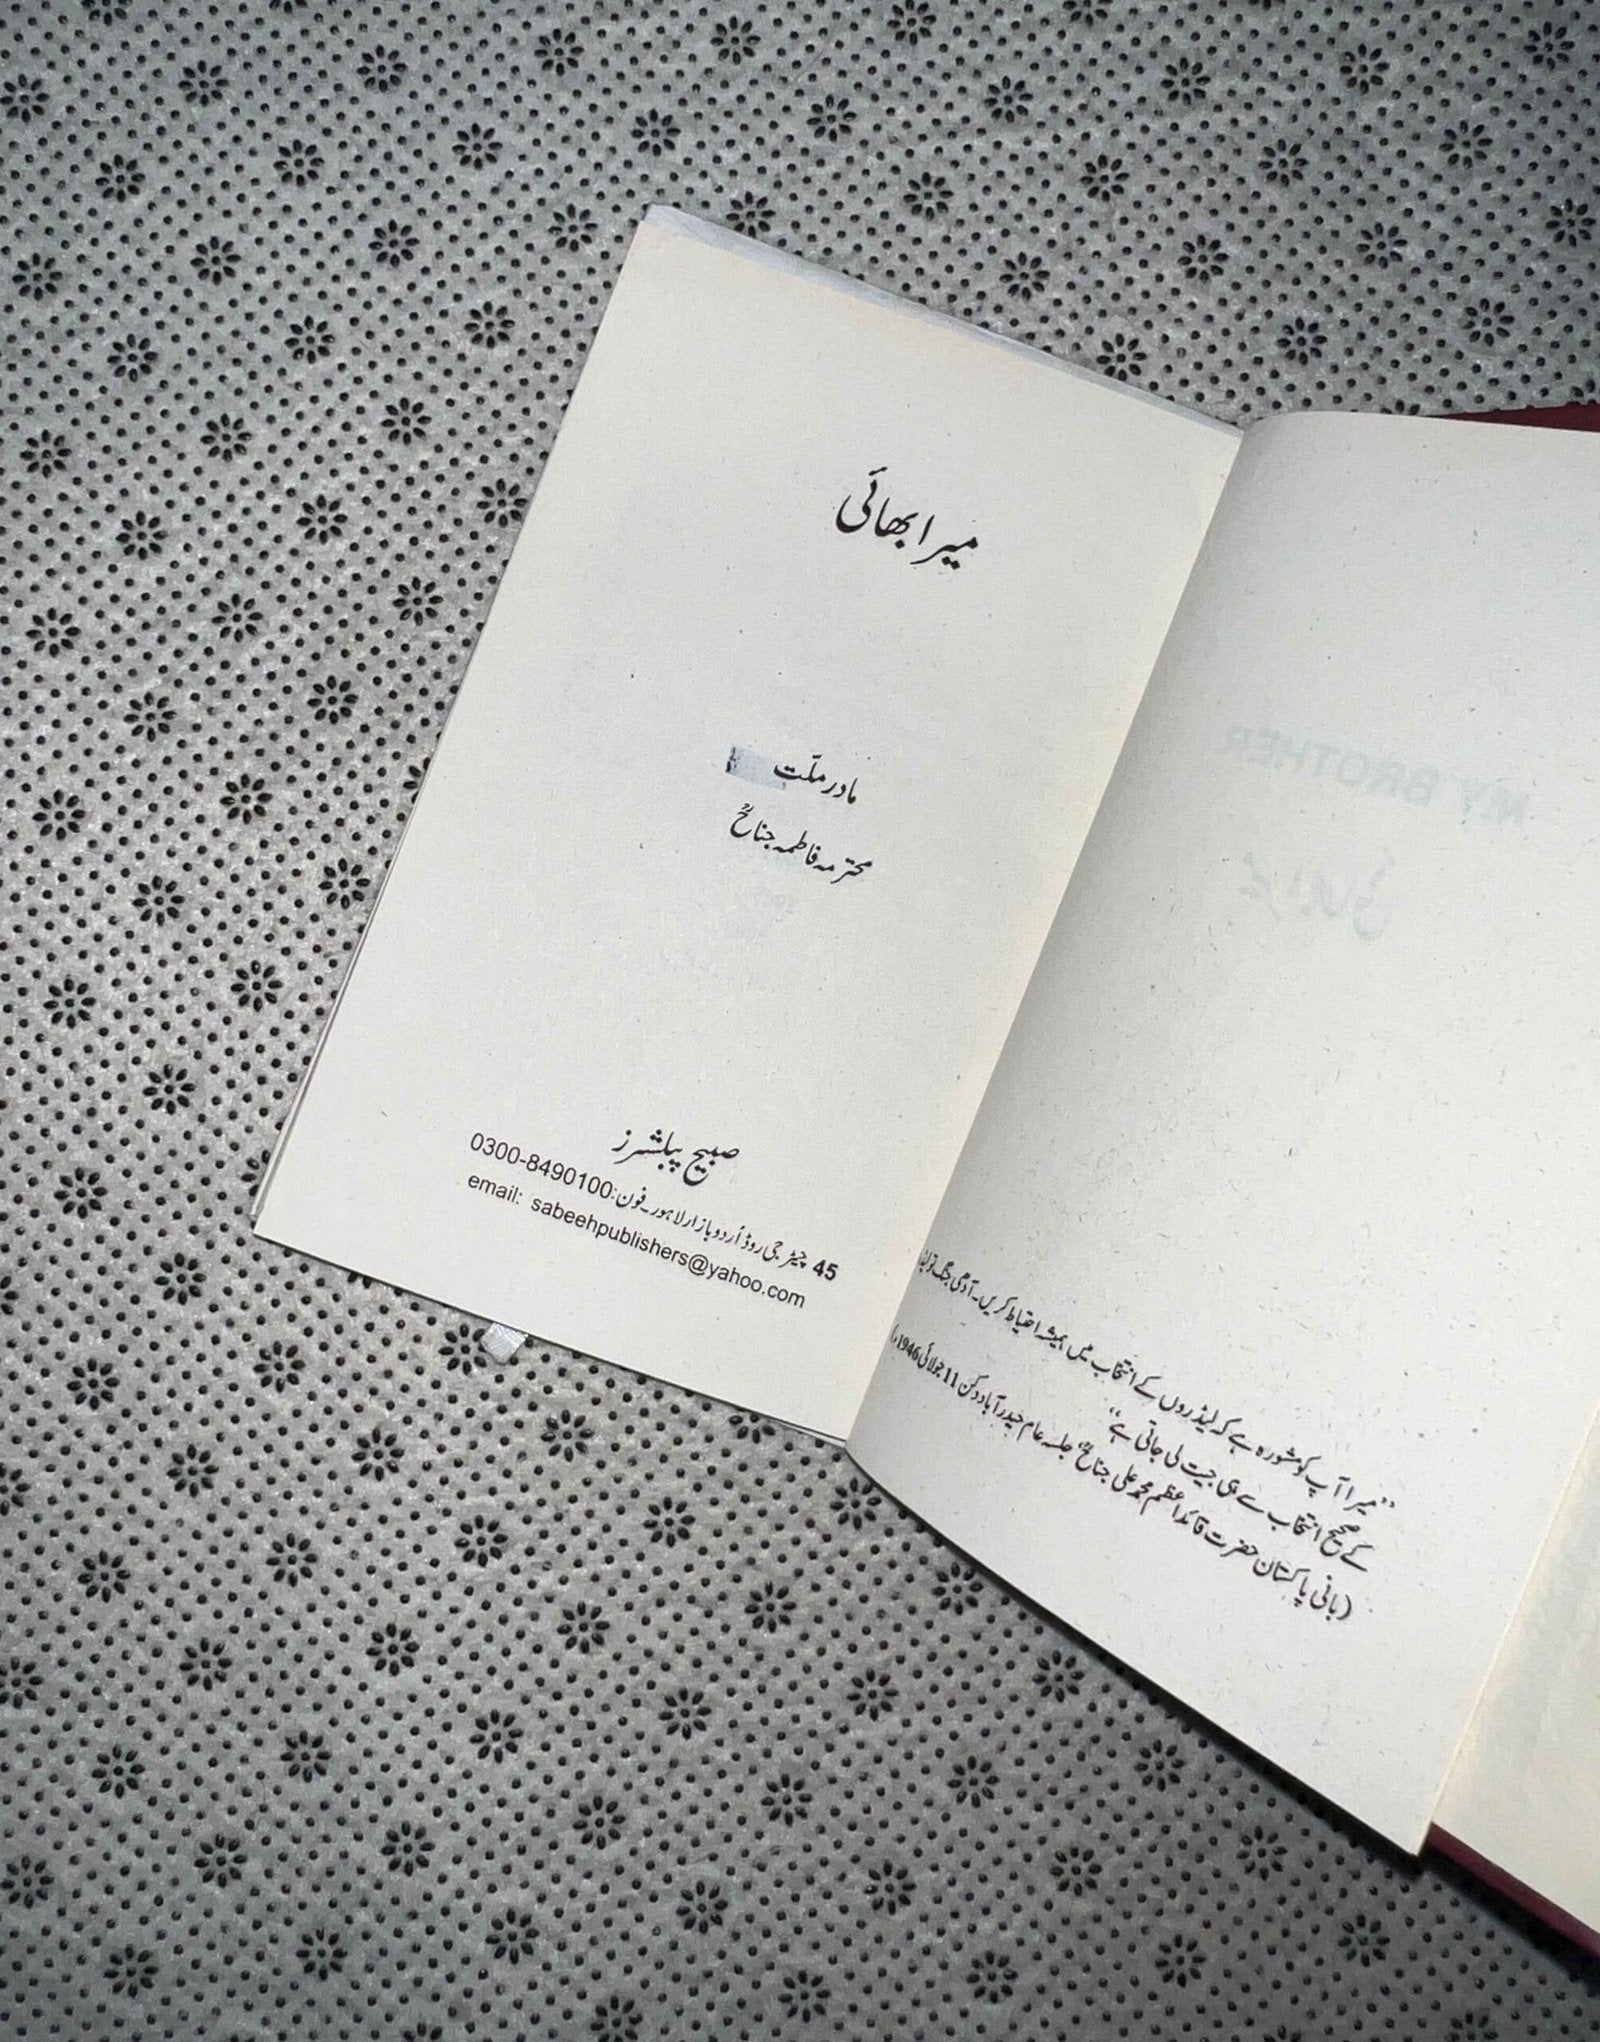 میرا بھائی
مادر ملّت
محترمہ فاطمہ جناحؒ
صبیح پبلشرز
45 چیٹر جی روڈ اُردو بازار لاہور۔ فون: 0300-8490100
email: sabeehpublishers@yahoo.com
MY BROTHER
میرا بھائی
”میرا آپ کو مشورہ ہے کہ لیڈروں کے انتخاب میں ہمیشہ احتیاط کریں۔ آدھی جنگ تو لیڈروں
کے صحیح انتخاب سے ہی جیت لی جاتی ہے“
(بانی پاکستان حضرت قائداعظم محمد علی جناحؒ جلسہ عام حیدرآباد دکن 11 جولائی 1946ء)